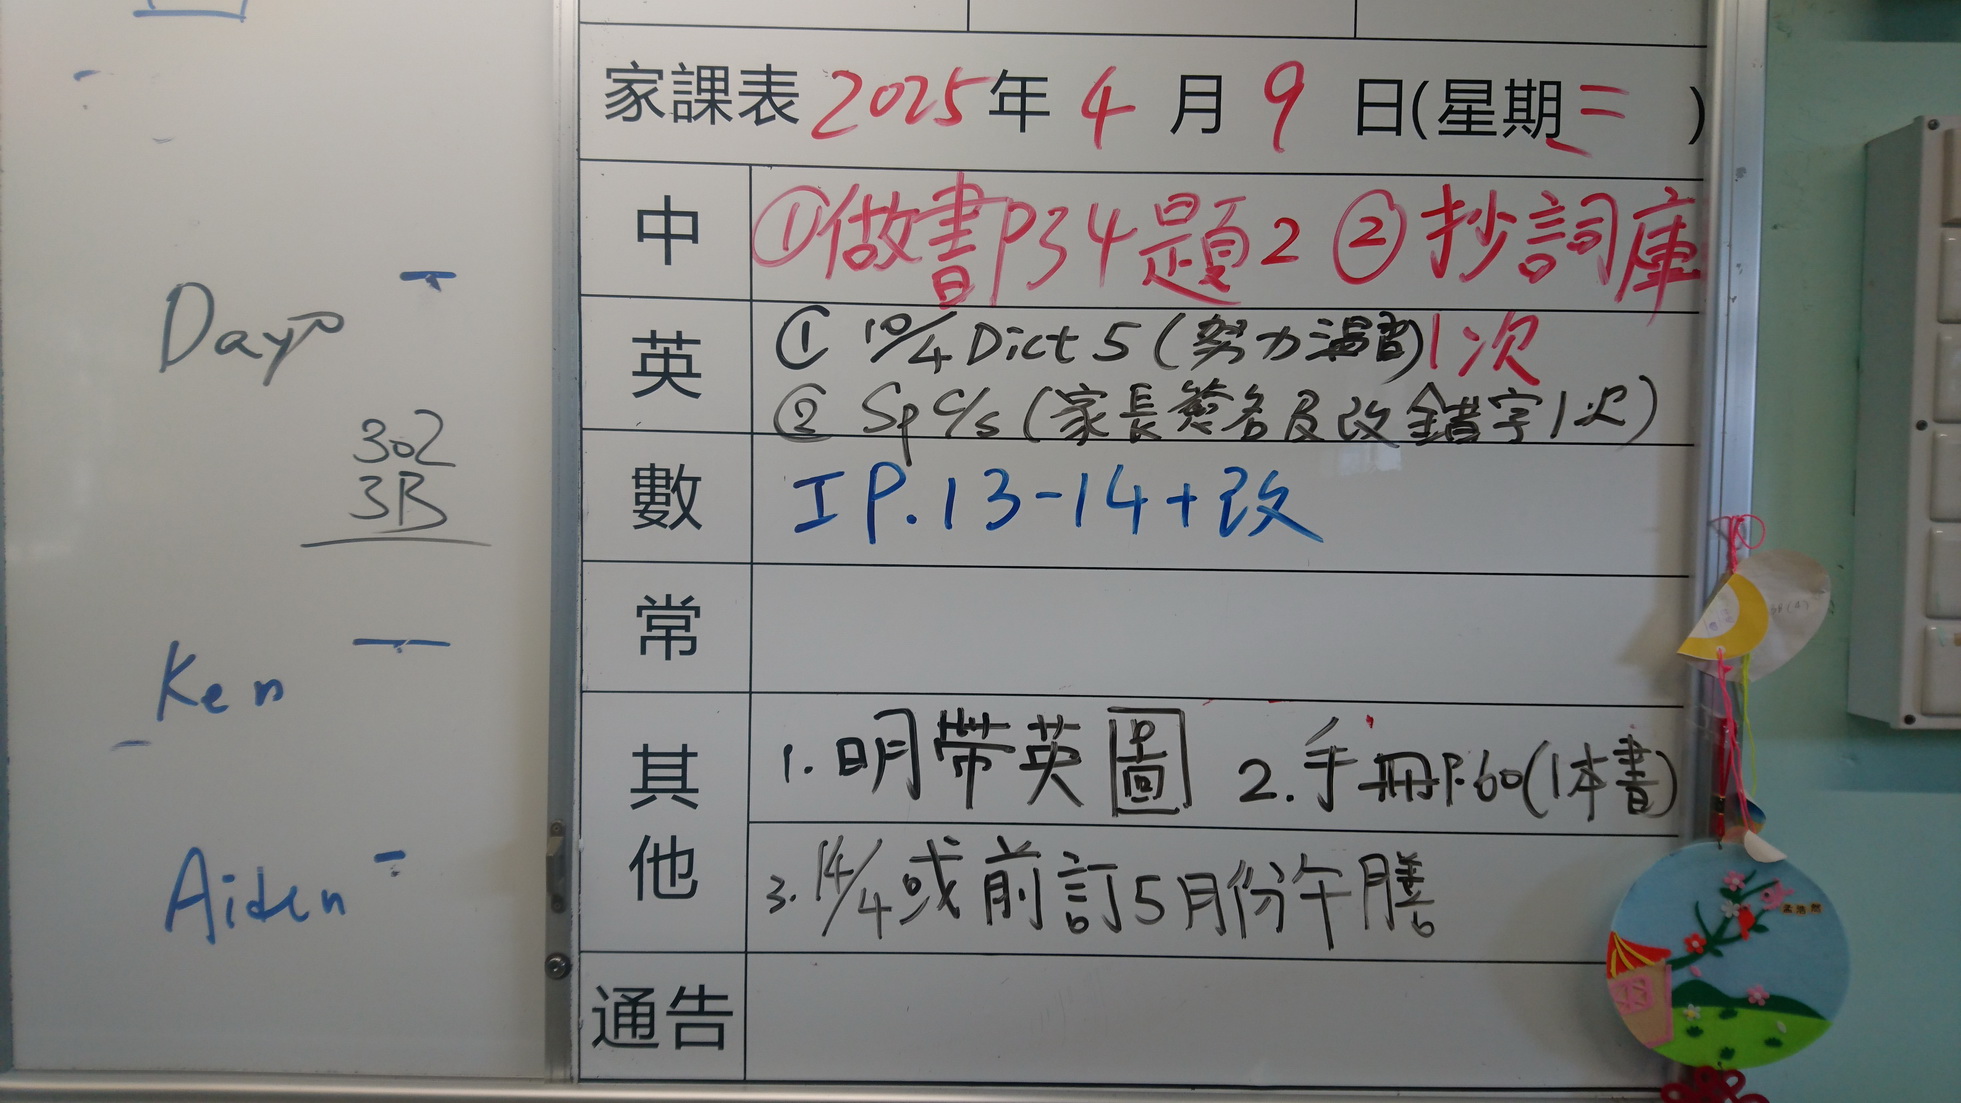 家課表 2025年 4 月 9 日(星期三)
中 ①做書P34題2 ②抄詞庫
英 ① 10/4 Dict 5 (努力溫習)1次
② Sp c/s (家長簽名及改錯字1次)
數 I P.13-14+改
常
其他 1.明帶英圖 2.手冊P.60(1本書)
3.14/4或前訂5月份午膳
通告
Day
302
3B
Ken
Aiden